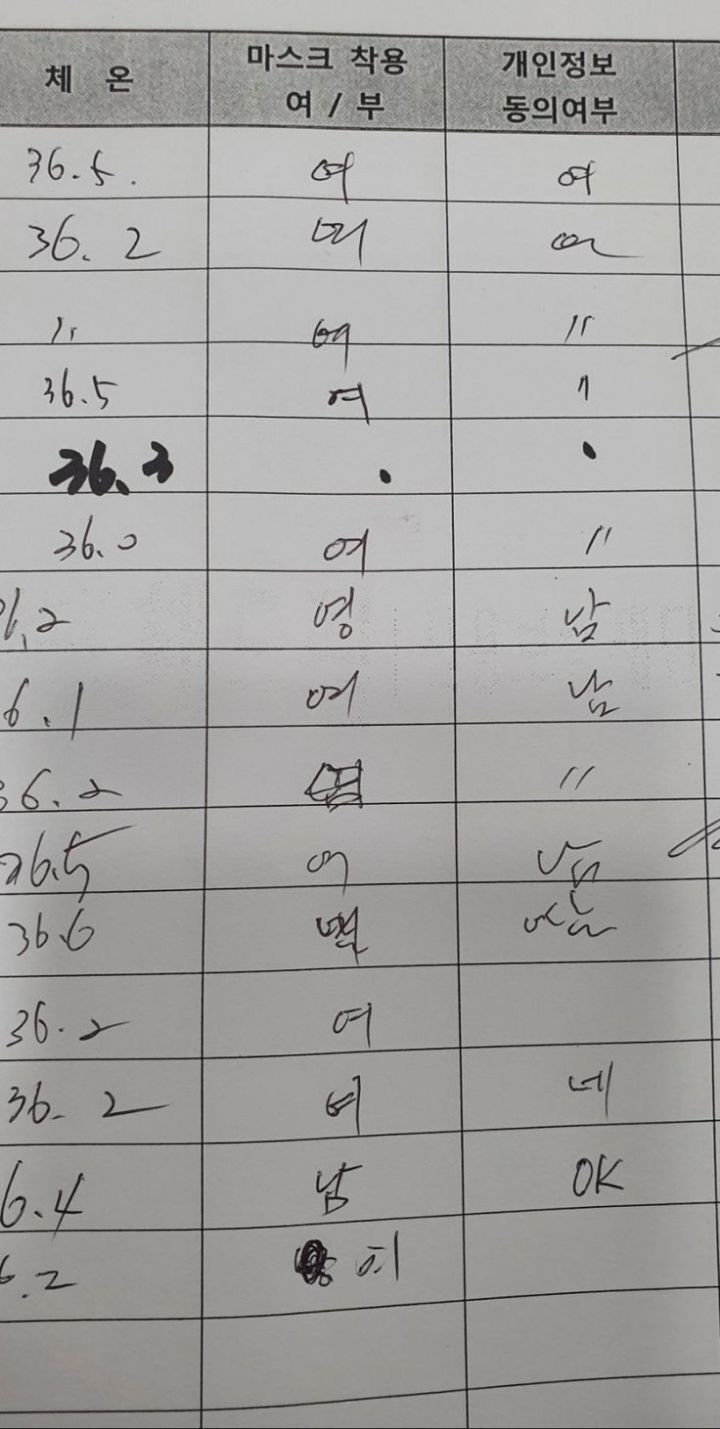 체 온 마스크 착용 여 / 부 개인정보 동의여부
36.5. 여 여
36.2 여 여
〃 여 〃
36.5 여 〃
36.3 . .
36.0 여 〃
36.2 영 남
6.1 여 남
36.2 〃
36.5 여 남
36.6
36.2 여
36.2 여 네
6.4 남 OK
6.2 여